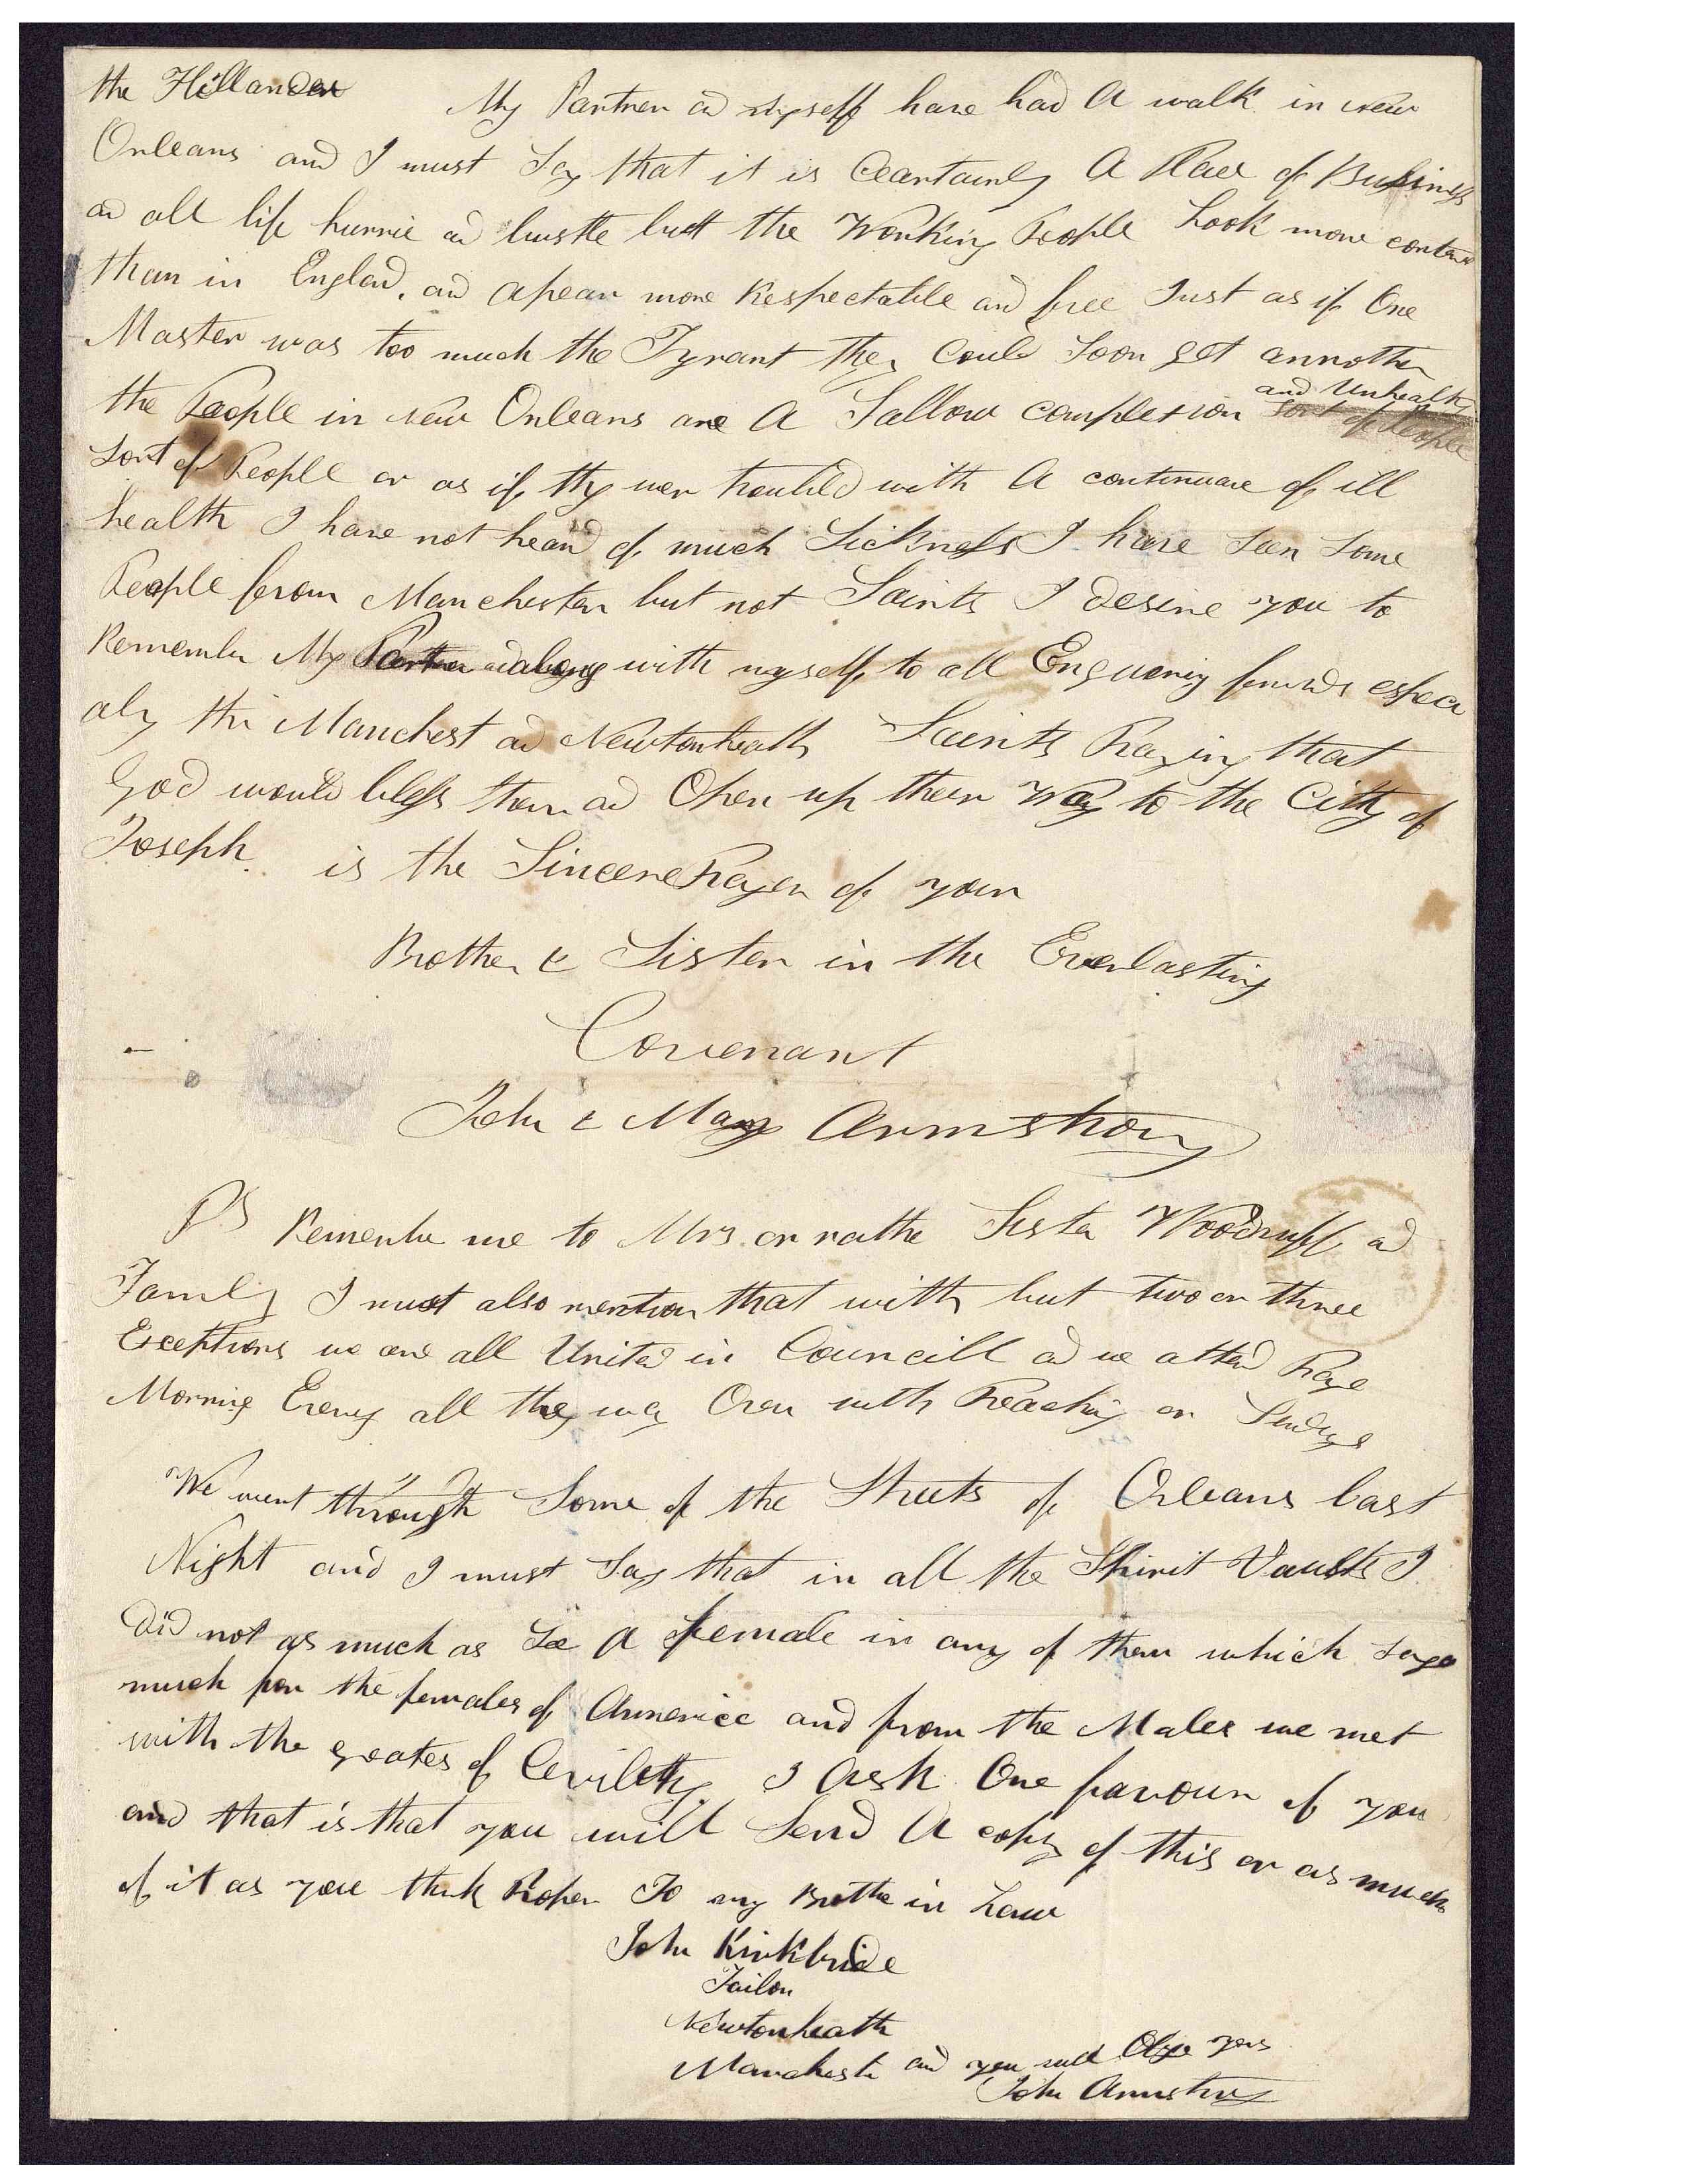 the Hollander My Partner ad Myself have had A walk in New
Orleans and I must Say that it is Ceartainly A Place of Business
ad all life hurrie ad bustle butt the Working People Look more contend
than in Englad, ad apear more Respectable and free Just as if One
Master was too much the Tyrant they Could Soon get annother
the People in New Orleans are A Sallow complexion and Unhealthy
Sort of People
Sort of People or as if thy wer troubled with A continuance of ill
health I have not heard of much Sickness I have Seen Some
People from Manchester but not Saints I desire you to
Remember My Partner ad along with myself to all Enquering friends especi
aly the Manchest ad Newtonheath Saints Praying that
God would bless them ad Open up their Way to the Citty of
Joseph. is the Sincere Prayer of your
Brother & Sister in the Everlasting
Covenant
John & Mary Armstrong
PS Remember me to Mrs. or rathe Sister Woodruff ad
Family I must also mention that with but two or three
Exceptions we are all United in Councill ad we attend Praye
Morning Eveng all the way Over with Preaching on Sundays
We went through Some of the Streets of Orleans last
Night and I must Say that in all the Spirit Vaults I
did not as much as See A female in any of them which Says
much for the females of Americe and from the Males we met
with the greates of Cevilitty I Ask One favour of you
and that is that you will Send A copy of this or as much
of it as you think Proper To my Brother in Law
John Kirkbride
Tailor
Newtonheath
Manchester and you will Oblige yours
John Armstrong